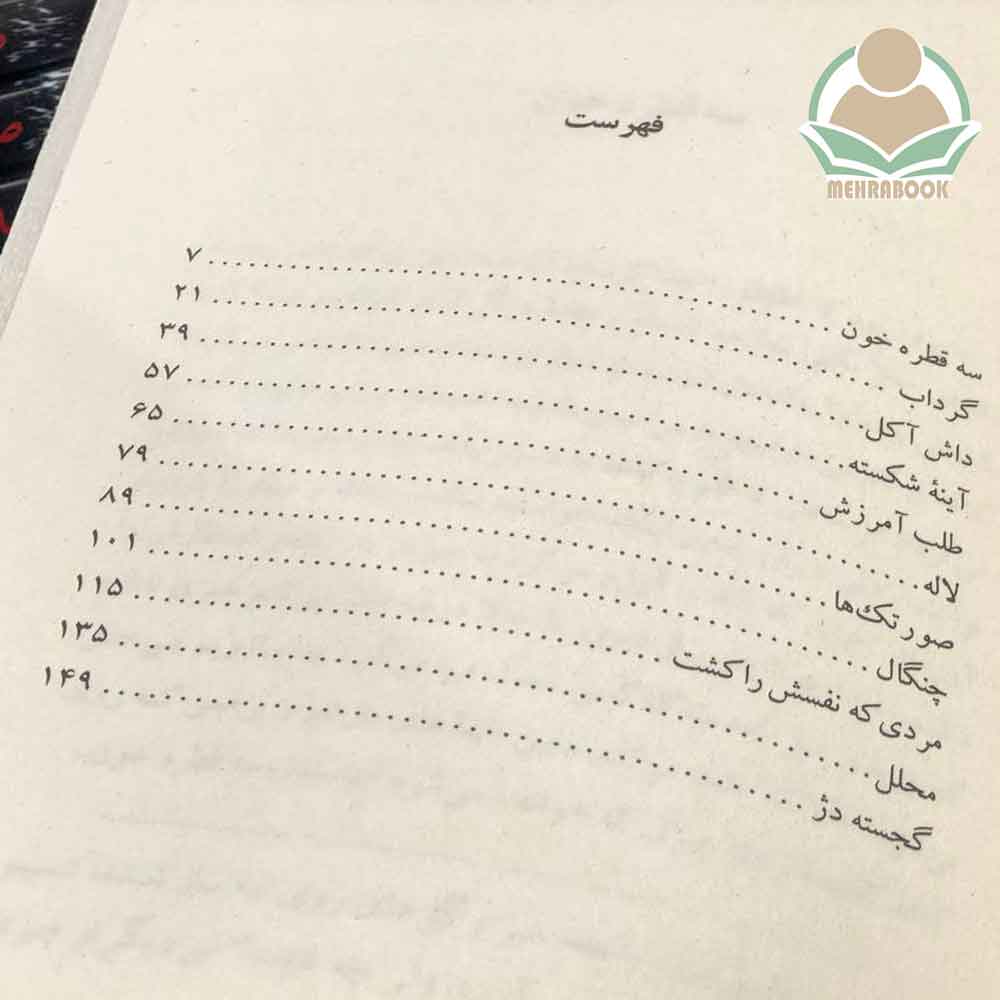 MEHRABOOK
فهرست
سه قطره خون ........ ۷
گرداب ........ ۲۱
داش آکل ........ ۳۹
آینهٔ شکسته ........ ۵۷
طلب آمرزش ........ ۶۵
لاله ........ ۷۹
صورتک‌ها ........ ۸۹
چنگال ........ ۱۰۱
مردی که نفسش را کشت ........ ۱۱۵
محلل ........ ۱۳۵
گجسته دژ ........ ۱۴۹